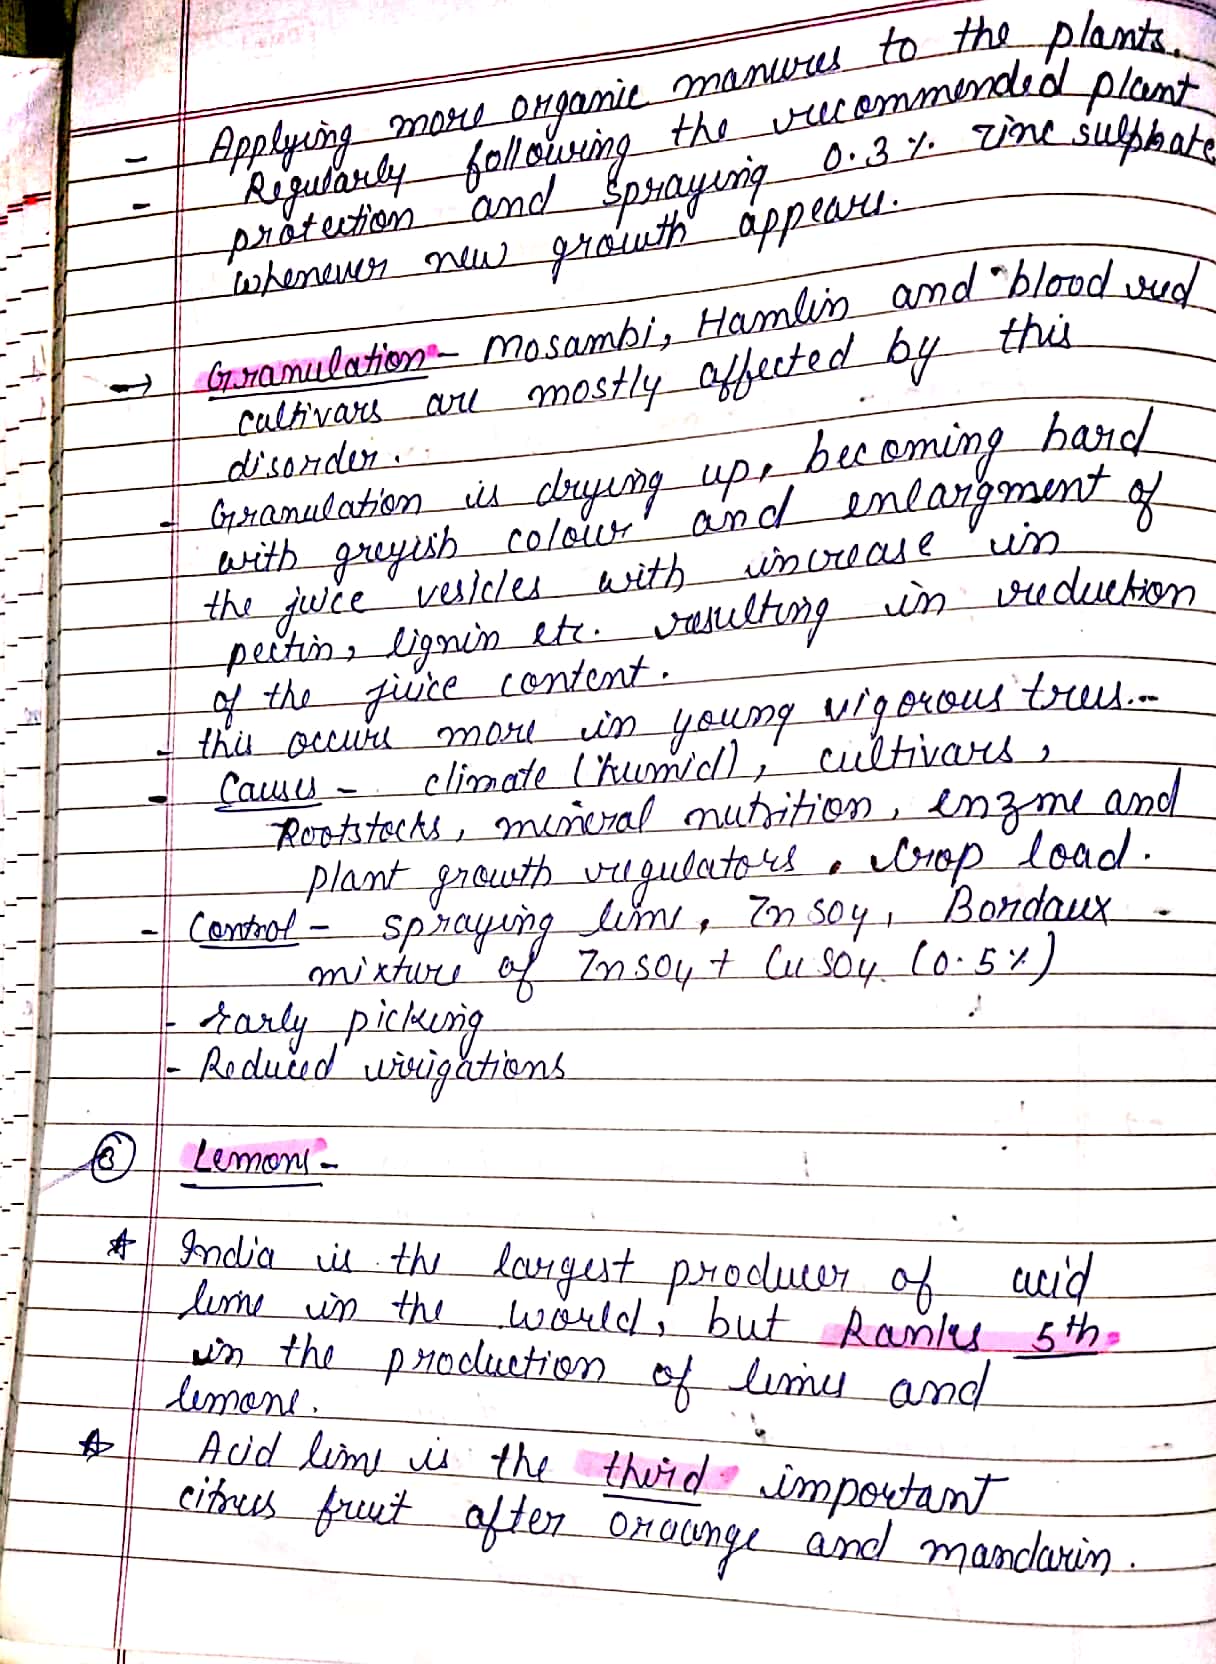 - Applying more organic manures to the plants.
- Regularly following the recommended plant
protection and spraying 0.3 % zinc sulphate
whenever new growth appears.
→ Granulation - Mosambi, Hamlin and blood red
cultivars are mostly affected by this
disorder.
- Granulation is drying up, becoming hard
with greyish colour and enlargment of
the juice vesicles with increase in
pectin, lignin etc. resulting in reduction
of the juice content.
- this occurs more in young vigorous trees.
- Causes - climate (humid), cultivars,
Rootstocks, mineral nutrition, enzme and
plant growth regulators, Crop load.
- Control - spraying lime, ZnSO4, Bordaux
mixture of ZnSO4 + CuSO4 (0.5%)
- Early picking
- Reduced irrigations
Lemons -
☆ India is the largest producer of acid
lime in the world, but Ranks 5th
in the production of limes and
lemons.
☆ Acid lime is the third important
citrus fruit after orange and mandarin.